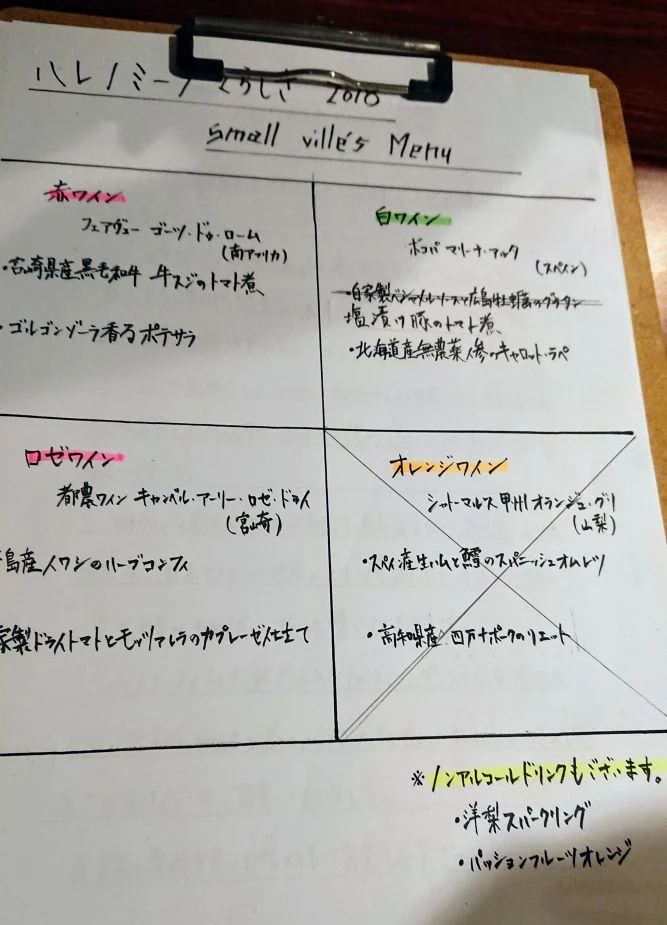 ハレノミーノ くらしき 2010
small ville's Menu
赤ワイン
フェアヴュー ゴーツ・ドゥ・ローム
(南アフリカ)
・宮崎県産黒毛和牛 牛スジのトマト煮
・ゴルゴンゾーラ香るポテサラ
白ワイン
ボカパ マリーナ・アルタ
(スペイン)
・自家製ベシャメルソースと広島牡蠣のグラタン
塩漬け豚のトマト煮
・北海道産無農薬人参のキャロット・ラペ
ロゼワイン
都農ワイン キャンベル・アーリー・ロゼ・ドライ
(宮崎)
島産イワシのハーブコンフィ
家製ドライトマトとモッツァレラのカプレーゼ仕立て
オレンジワイン
シャトーマルス 甲州 オランジュ・グリ
(山梨)
・スペイン産生ハムと鱈のスパニッシュオムレツ
・高知県産 四万十ポークのリエット
※ノンアルコールドリンクもございます。
・洋梨スパークリング
・パッションフルーツオレンジ